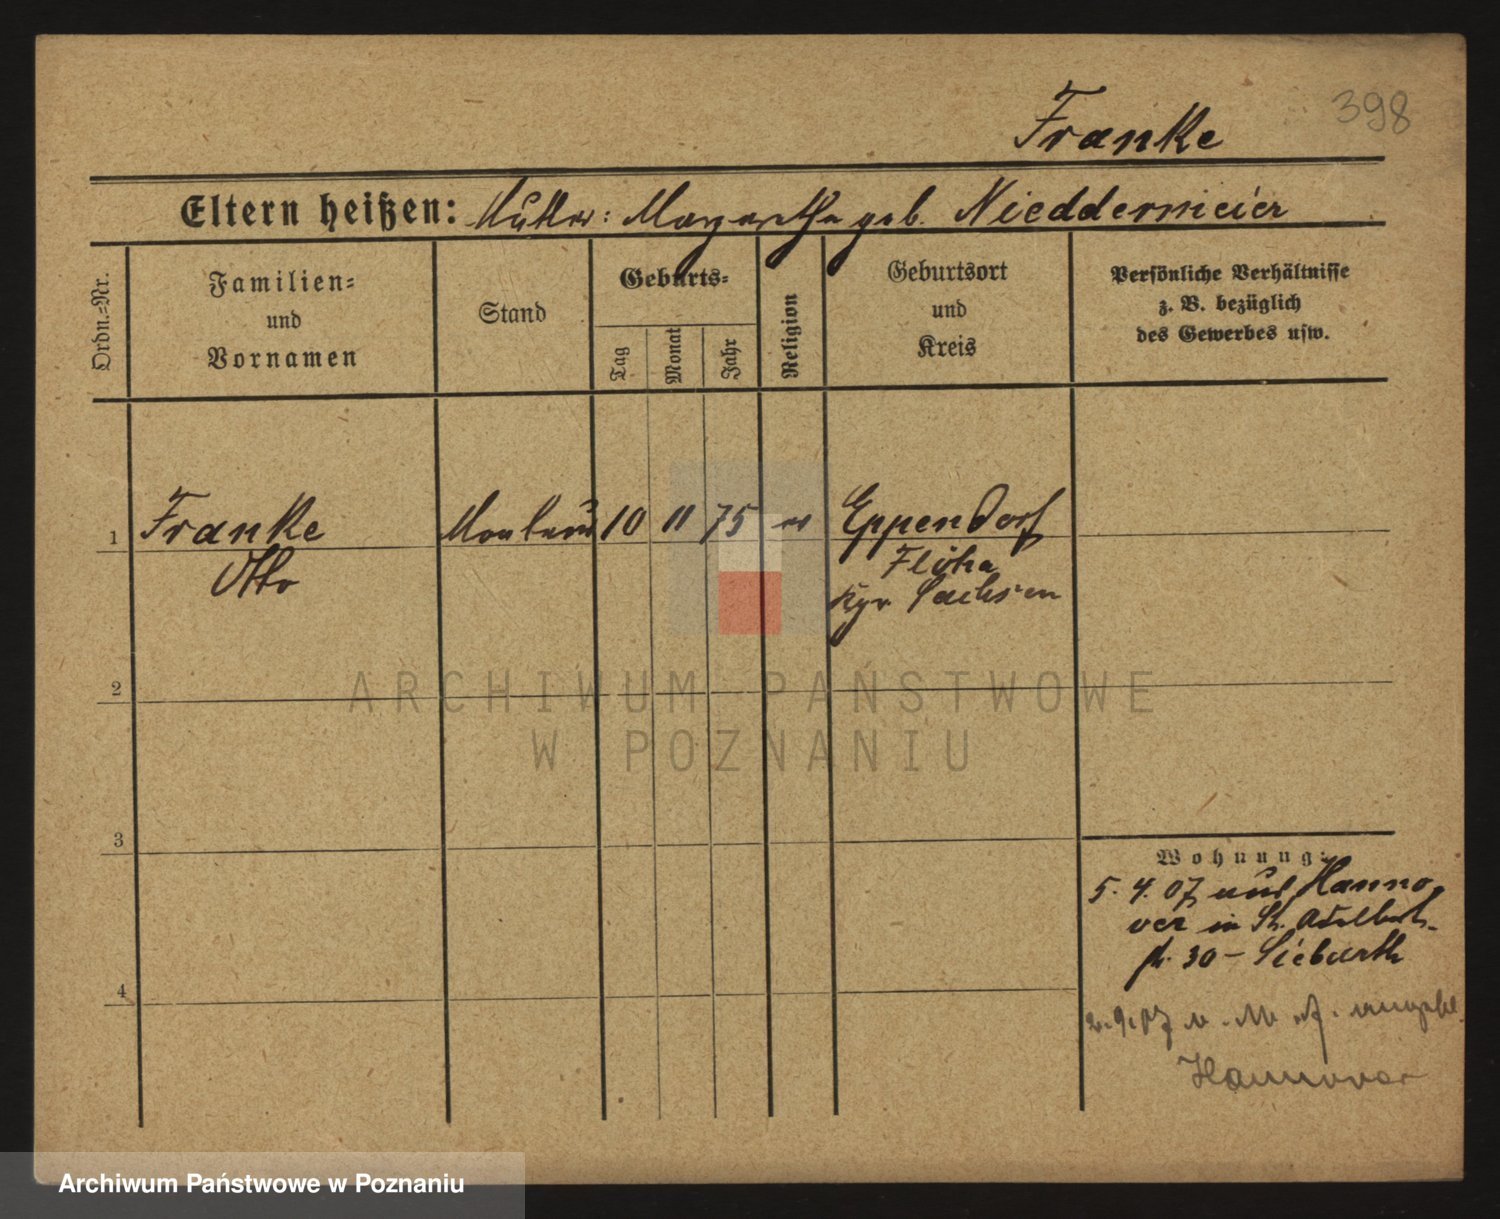 398
Franke
Eltern heißen: Mutter: Margarethe geb. Nieddermeier
Ordn.-Nr.
Familien-
und
Vornamen
Stand
Geburts-
Tag
Monat
Jahr
Religion
Geburtsort
und
Kreis
Persönliche Verhältnisse
z. B. bezüglich
des Gewerbes usw.
1 Franke Monteur 10 11 75 ev Eppendorf
Otto Flöha
Kgr Sachsen
2
3
4
Wohnung:
5. 4. 07 aus Hanno-
ver in St. Adalbert-
str. 30 - Siebarth
2. 9. 07
Hannover
ARCHIWUM PAŃSTWOWE
W POZNANIU
Archiwum Państwowe w Poznaniu